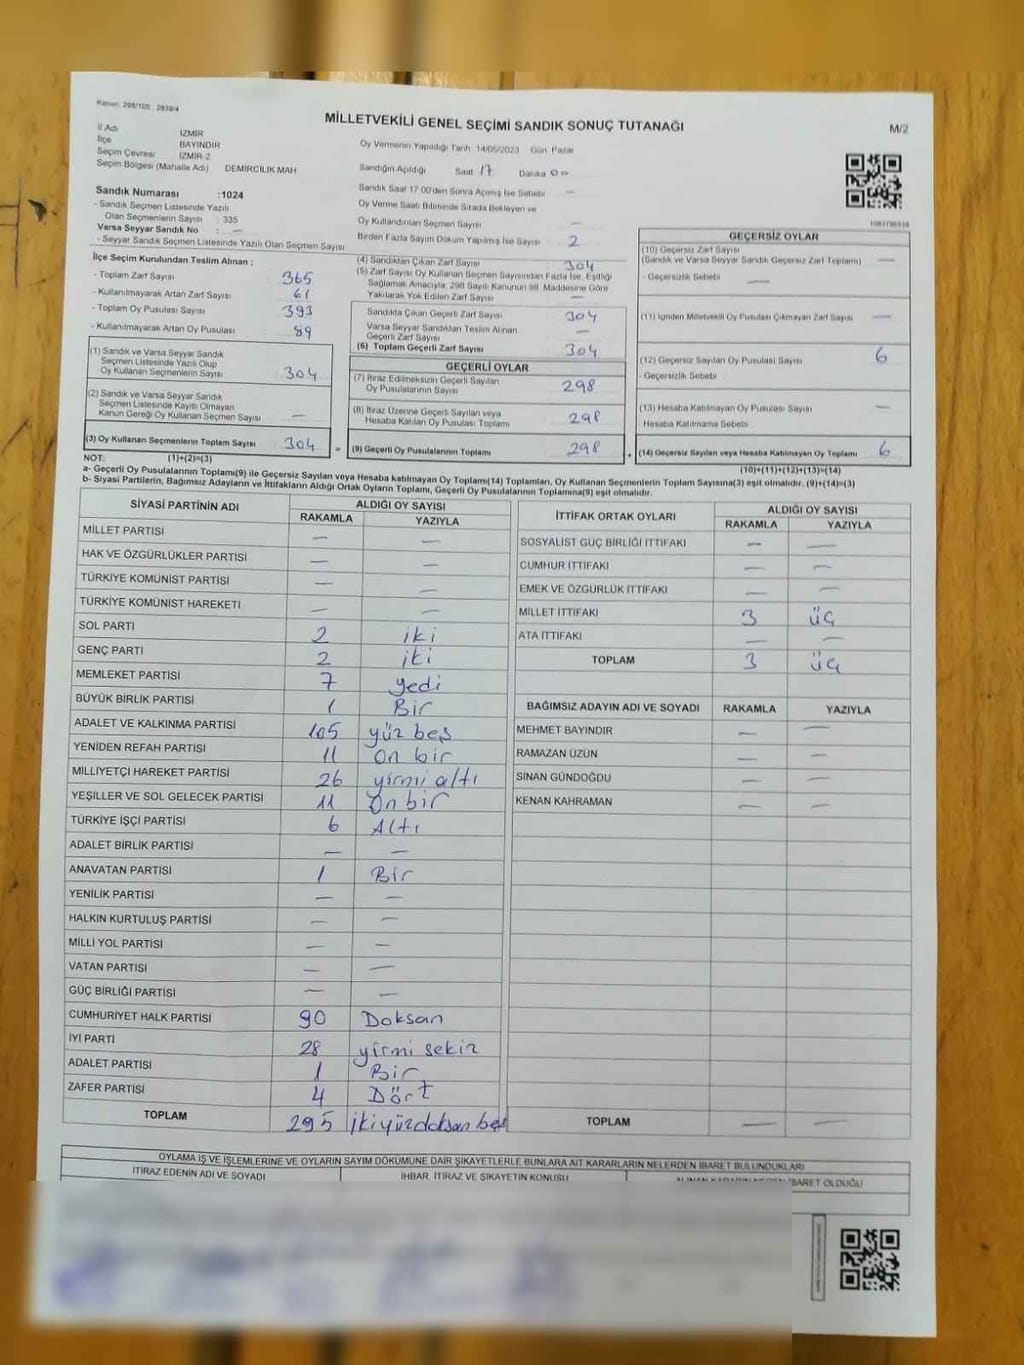 Kanun: 298/105 , 2839/4
MİLLETVEKİLİ GENEL SEÇİMİ SANDIK SONUÇ TUTANAĞI
M/2
İl Adı İZMİR
İlçe BAYINDIR
Seçim Çevresi İZMİR-2
Seçim Bölgesi (Mahalle Adı) DEMİRCİLİK MAH
Sandık Numarası :1024
- Sandık Seçmen Listesinde Yazılı
Olan Seçmenlerin Sayısı : 335
Varsa Seyyar Sandık No : —
- Seyyar Sandık Seçmen Listesinde Yazılı Olan Seçmen Sayısı
Oy Vermenin Yapıldığı Tarih 14/05/2023 Gün Pazar
Sandığın Açıldığı Saat 17 Dakika 00
Sandık Saat 17.00'den Sonra Açılmış İse Sebebi —
Oy Verme Saati Bitiminde Sırada Bekleyen ve
Oy Kullandırılan Seçmen Sayısı —
Birden Fazla Sayım Döküm Yapılmış İse Sayısı 2
İlçe Seçim Kurulundan Teslim Alınan :
- Toplam Zarf Sayısı 365
- Kullanılmayarak Artan Zarf Sayısı 61
- Toplam Oy Pusulası Sayısı 393
- Kullanılmayarak Artan Oy Pusulası 89
(1) Sandık ve Varsa Seyyar Sandık
Seçmen Listesinde Yazılı Olup
Oy Kullanan Seçmenlerin Sayısı 304
(2) Sandık ve Varsa Seyyar Sandık
Seçmen Listesinde Kayıtlı Olmayan
Kanun Gereği Oy Kullanan Seçmen Sayısı —
(3) Oy Kullanan Seçmenlerin Toplam Sayısı 304
(4) Sandıktan Çıkan Zarf Sayısı 304
(5) Zarf Sayısı Oy Kullanan Seçmen Sayısından Fazla İse, Eşitliği
Sağlamak Amacıyla; 298 Sayılı Kanunun 98. Maddesine Göre
Yakılarak Yok Edilen Zarf Sayısı —
Sandıkta Çıkan Geçerli Zarf Sayısı 304
Varsa Seyyar Sandıktan Teslim Alınan
Geçerli Zarf Sayısı —
(6) Toplam Geçerli Zarf Sayısı 304
GEÇERLİ OYLAR
(7) İtiraz Edilmeksizin Geçerli Sayılan
Oy Pusulalarının Sayısı 298
(8) İtiraz Üzerine Geçerli Sayılan veya
Hesaba Katılan Oy Pusulası Toplamı 298
= (9) Geçerli Oy Pusulalarının Toplamı 298
GEÇERSİZ OYLAR
(10) Geçersiz Zarf Sayısı
(Sandık ve Varsa Seyyar Sandık Geçersiz Zarf Toplamı) —
- Geçersizlik Sebebi —
(11) İçinden Milletvekili Oy Pusulası Çıkmayan Zarf Sayısı —
(12) Geçersiz Sayılan Oy Pusulası Sayısı 6
- Geçersizlik Sebebi
(13) Hesaba Katılmayan Oy Pusulası Sayısı —
Hesaba Katılmama Sebebi
+ (14) Geçersiz Sayılan veya Hesaba Katılmayan Oy Toplamı 6
NOT: (1)+(2)=(3)
(10)+(11)+(12)+(13)=(14)
a- Geçerli Oy Pusulalarının Toplamı(9) ile Geçersiz Sayılan veya Hesaba katılmayan Oy Toplamı(14) Toplamları, Oy Kullanan Seçmenlerin Toplam Sayısına(3) eşit olmalıdır. (9)+(14)=(3)
b- Siyasi Partilerin, Bağımsız Adayların ve İttifakların Aldığı Ortak Oyların Toplamı, Geçerli Oy Pusulalarının Toplamına(9) eşit olmalıdır.
SİYASİ PARTİNİN ADI ALDIĞI OY SAYISI
RAKAMLA YAZIYLA
MİLLET PARTİSİ — —
HAK VE ÖZGÜRLÜKLER PARTİSİ — —
TÜRKİYE KOMÜNİST PARTİSİ — —
TÜRKİYE KOMÜNİST HAREKETİ — —
SOL PARTİ 2 iki
GENÇ PARTİ 2 iki
MEMLEKET PARTİSİ 7 yedi
BÜYÜK BİRLİK PARTİSİ 1 Bir
ADALET VE KALKINMA PARTİSİ 105 yüz beş
YENİDEN REFAH PARTİSİ 11 on bir
MİLLİYETÇİ HAREKET PARTİSİ 26 yirmi altı
YEŞİLLER VE SOL GELECEK PARTİSİ 11 On bir
TÜRKİYE İŞÇİ PARTİSİ 6 Altı
ADALET BİRLİK PARTİSİ — —
ANAVATAN PARTİSİ 1 Bir
YENİLİK PARTİSİ — —
HALKIN KURTULUŞ PARTİSİ — —
MİLLİ YOL PARTİSİ — —
VATAN PARTİSİ — —
GÜÇ BİRLİĞİ PARTİSİ — —
CUMHURİYET HALK PARTİSİ 90 Doksan
İYİ PARTİ 28 yirmi sekiz
ADALET PARTİSİ 1 Bir
ZAFER PARTİSİ 4 Dört
TOPLAM 295 ikiyüzdoksan beş
İTTİFAK ORTAK OYLARI ALDIĞI OY SAYISI
RAKAMLA YAZIYLA
SOSYALİST GÜÇ BİRLİĞİ İTTİFAKI — —
CUMHUR İTTİFAKI — —
EMEK VE ÖZGÜRLÜK İTTİFAKI — —
MİLLET İTTİFAKI 3 üç
ATA İTTİFAKI — —
TOPLAM 3 üç
BAĞIMSIZ ADAYIN ADI VE SOYADI RAKAMLA YAZIYLA
MEHMET BAYINDIR — —
RAMAZAN UZUN — —
SİNAN GÜNDOĞDU — —
KENAN KAHRAMAN — —
TOPLAM — —
OYLAMA İŞ VE İŞLEMLERİNE VE OYLARIN SAYIM DÖKÜMÜNE DAİR ŞİKAYETLERLE BUNLARA AİT KARARLARIN NELERDEN İBARET BULUNDUKLARI
İTİRAZ EDENİN ADI VE SOYADI İHBAR, İTİRAZ VE ŞİKAYETİN KONUSU İBARET OLDUĞU